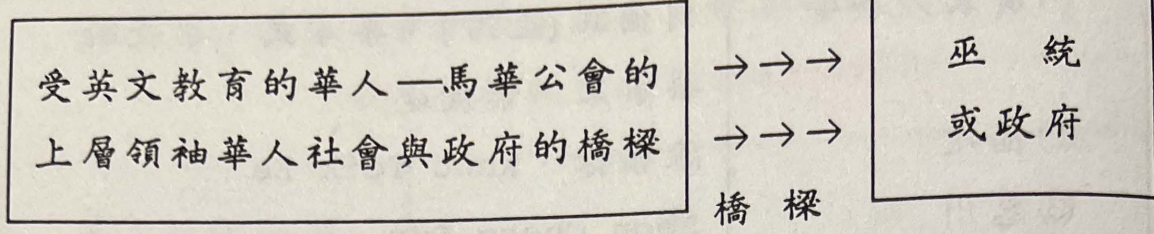 受英文教育的華人—馬華公會的
上層領袖華人社會與政府的橋樑
→→→
→→→
橋樑
巫統
或政府